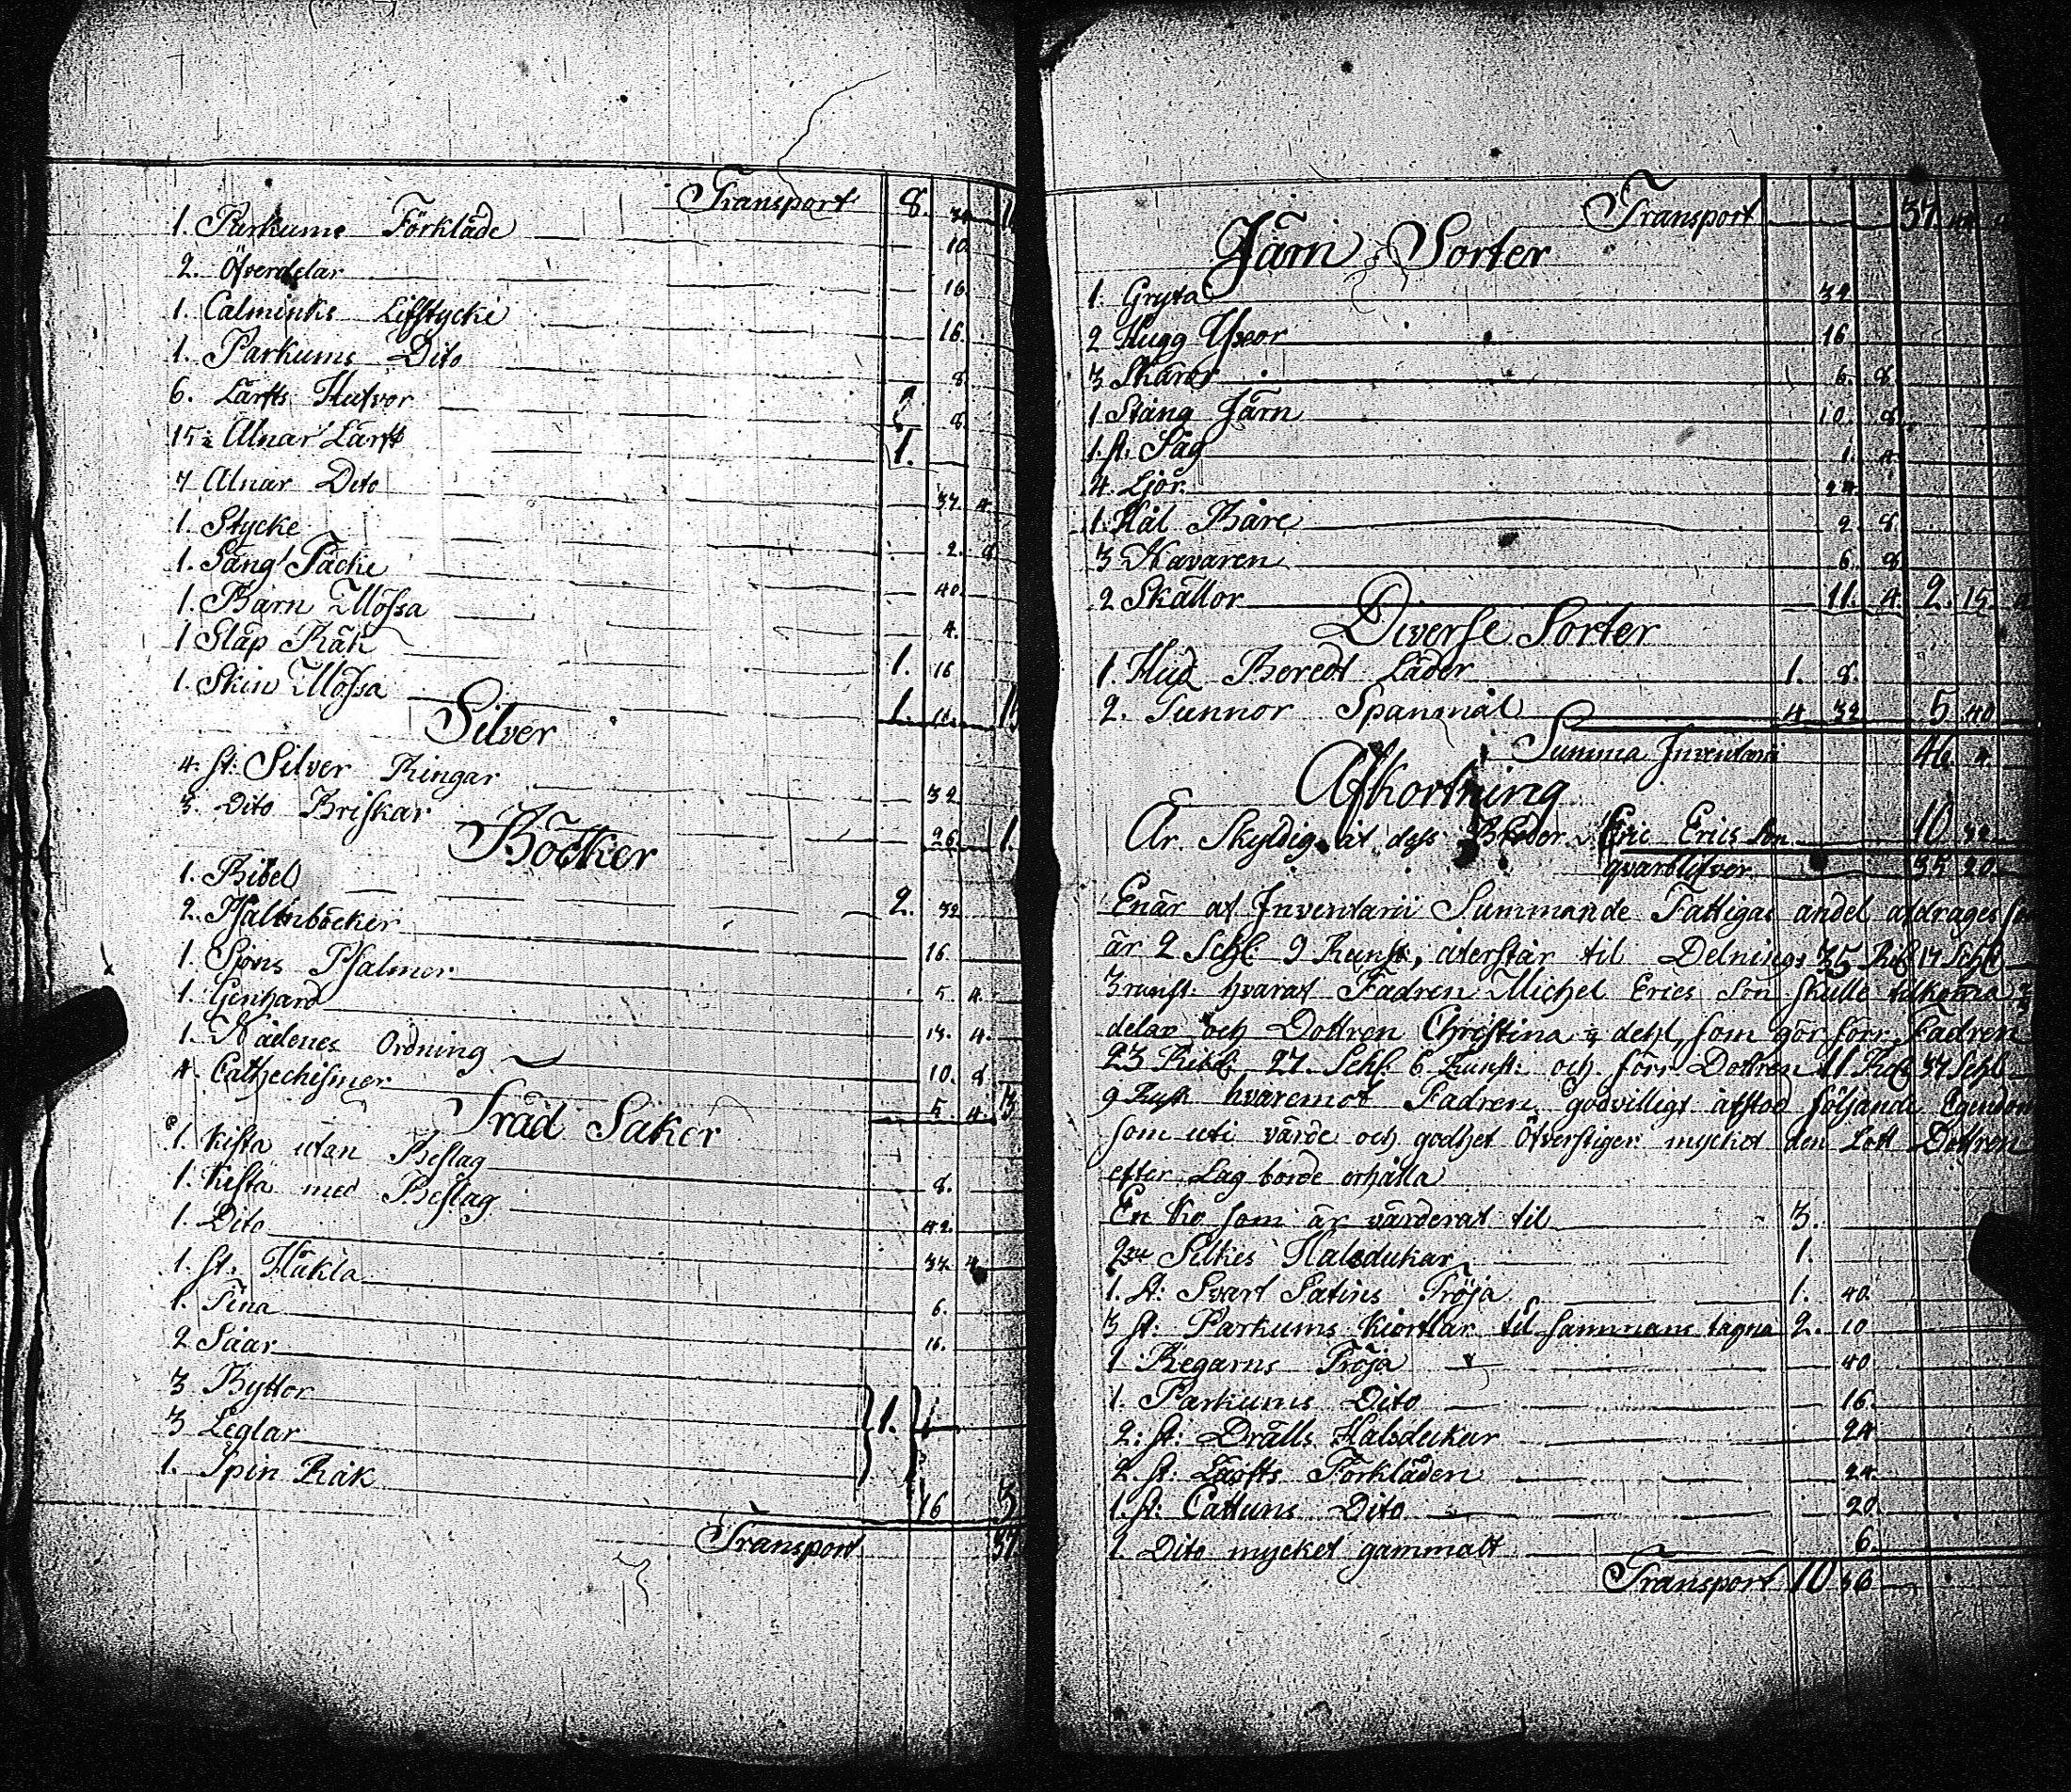 Transport 8.
1. Parkums Förkläde 10
2. Öfverdelar 16
1. Calminks Lifstycke 16.
1. Parkums Dito 8
6. Lärfts Hufvor 8.
15½ Alnar Lärft 1.
7 Alnar Dito 37 4
1. Stycke 2. 8
1. Säng Täcke 40
1. Barn Mössa 4.
1 Släp Räk 1. 16
1. Skin Mössa 1.
Silver
4. st: Silver Ringar 32
3. Dito Briskar 26 1.
Böcker
1. Bibel 2. 32
2. Psalmböcker 16
1. Sions Psalmer 5 4.
1. Genhard 13. 4.
1. Nådenes Ordning 10. 8
4. Cathechismer 5. 4. 3
Träd Saker
1. Kista utan Beslag 8.
1. Kista med Beslag 42.
1. Dito 37 4
1. st. Häkla 6.
1. Tina 16.
2 Såar
3 Byttor 1.
3 Leglar
1. Spin Råk 16 3
Transport 37
Transport 37.
Järn Sorter
1. Gryta 32
2 Hugg Yxor 16
3 Skäror 6. 8
1 Stång Järn 10. 8.
1. st. Såg 1. 4.
4. Ljor 24
1. Hål Bare 2. 8.
3 Navaren 6. 8
2 Skällor 11. 4. 2. 15.
Diverse Sorter
1. Hud Beredt Läder 1. 8.
2. Tunnor Spanmål 4 32 5 40
Summa Inventarii 46. 4.
Afkortning
Är Skyldig åt dess Broder Eric Erics Son 10 32
qvarblifver 35 20
Enär af Inventarii Summan de Fattigas andel afdrages som
är 2 Schl. 9 Runst., återstår til Delnings 35 Rd 17 Schl
3 runst: hvaraf Fadren Michel Erics Son skulle tilkoma
delar och Dottren Christina ⅓ dehl, som gör förr Fadren
23 Rikd. 27. Schl. 6 Runst: och förr Dottren 11 Rd 37 Schl
9 Runst hvaremot Fadren godvilligt afstod följande Egendom
som uti värde och godhet Öfverstiger mycket den Lott Dottren
efter Lag borde erhålla
En Ko som är värderat til 3.
2ne Silkes Halsdukar 1.
1. st: Svart Satins Tröja 1. 40.
3 st: Parkums Kiortlar til samans tagna 2. 10
1 Regarns Tröja 40
1. Parkums Dito 16.
2: st: Drälls Halsdukar 24
2. st: Lärfts Förkläden 24.
1. st: Cattuns Dito 20
1. Dito mycket gammalt 6.
Transport 10 36